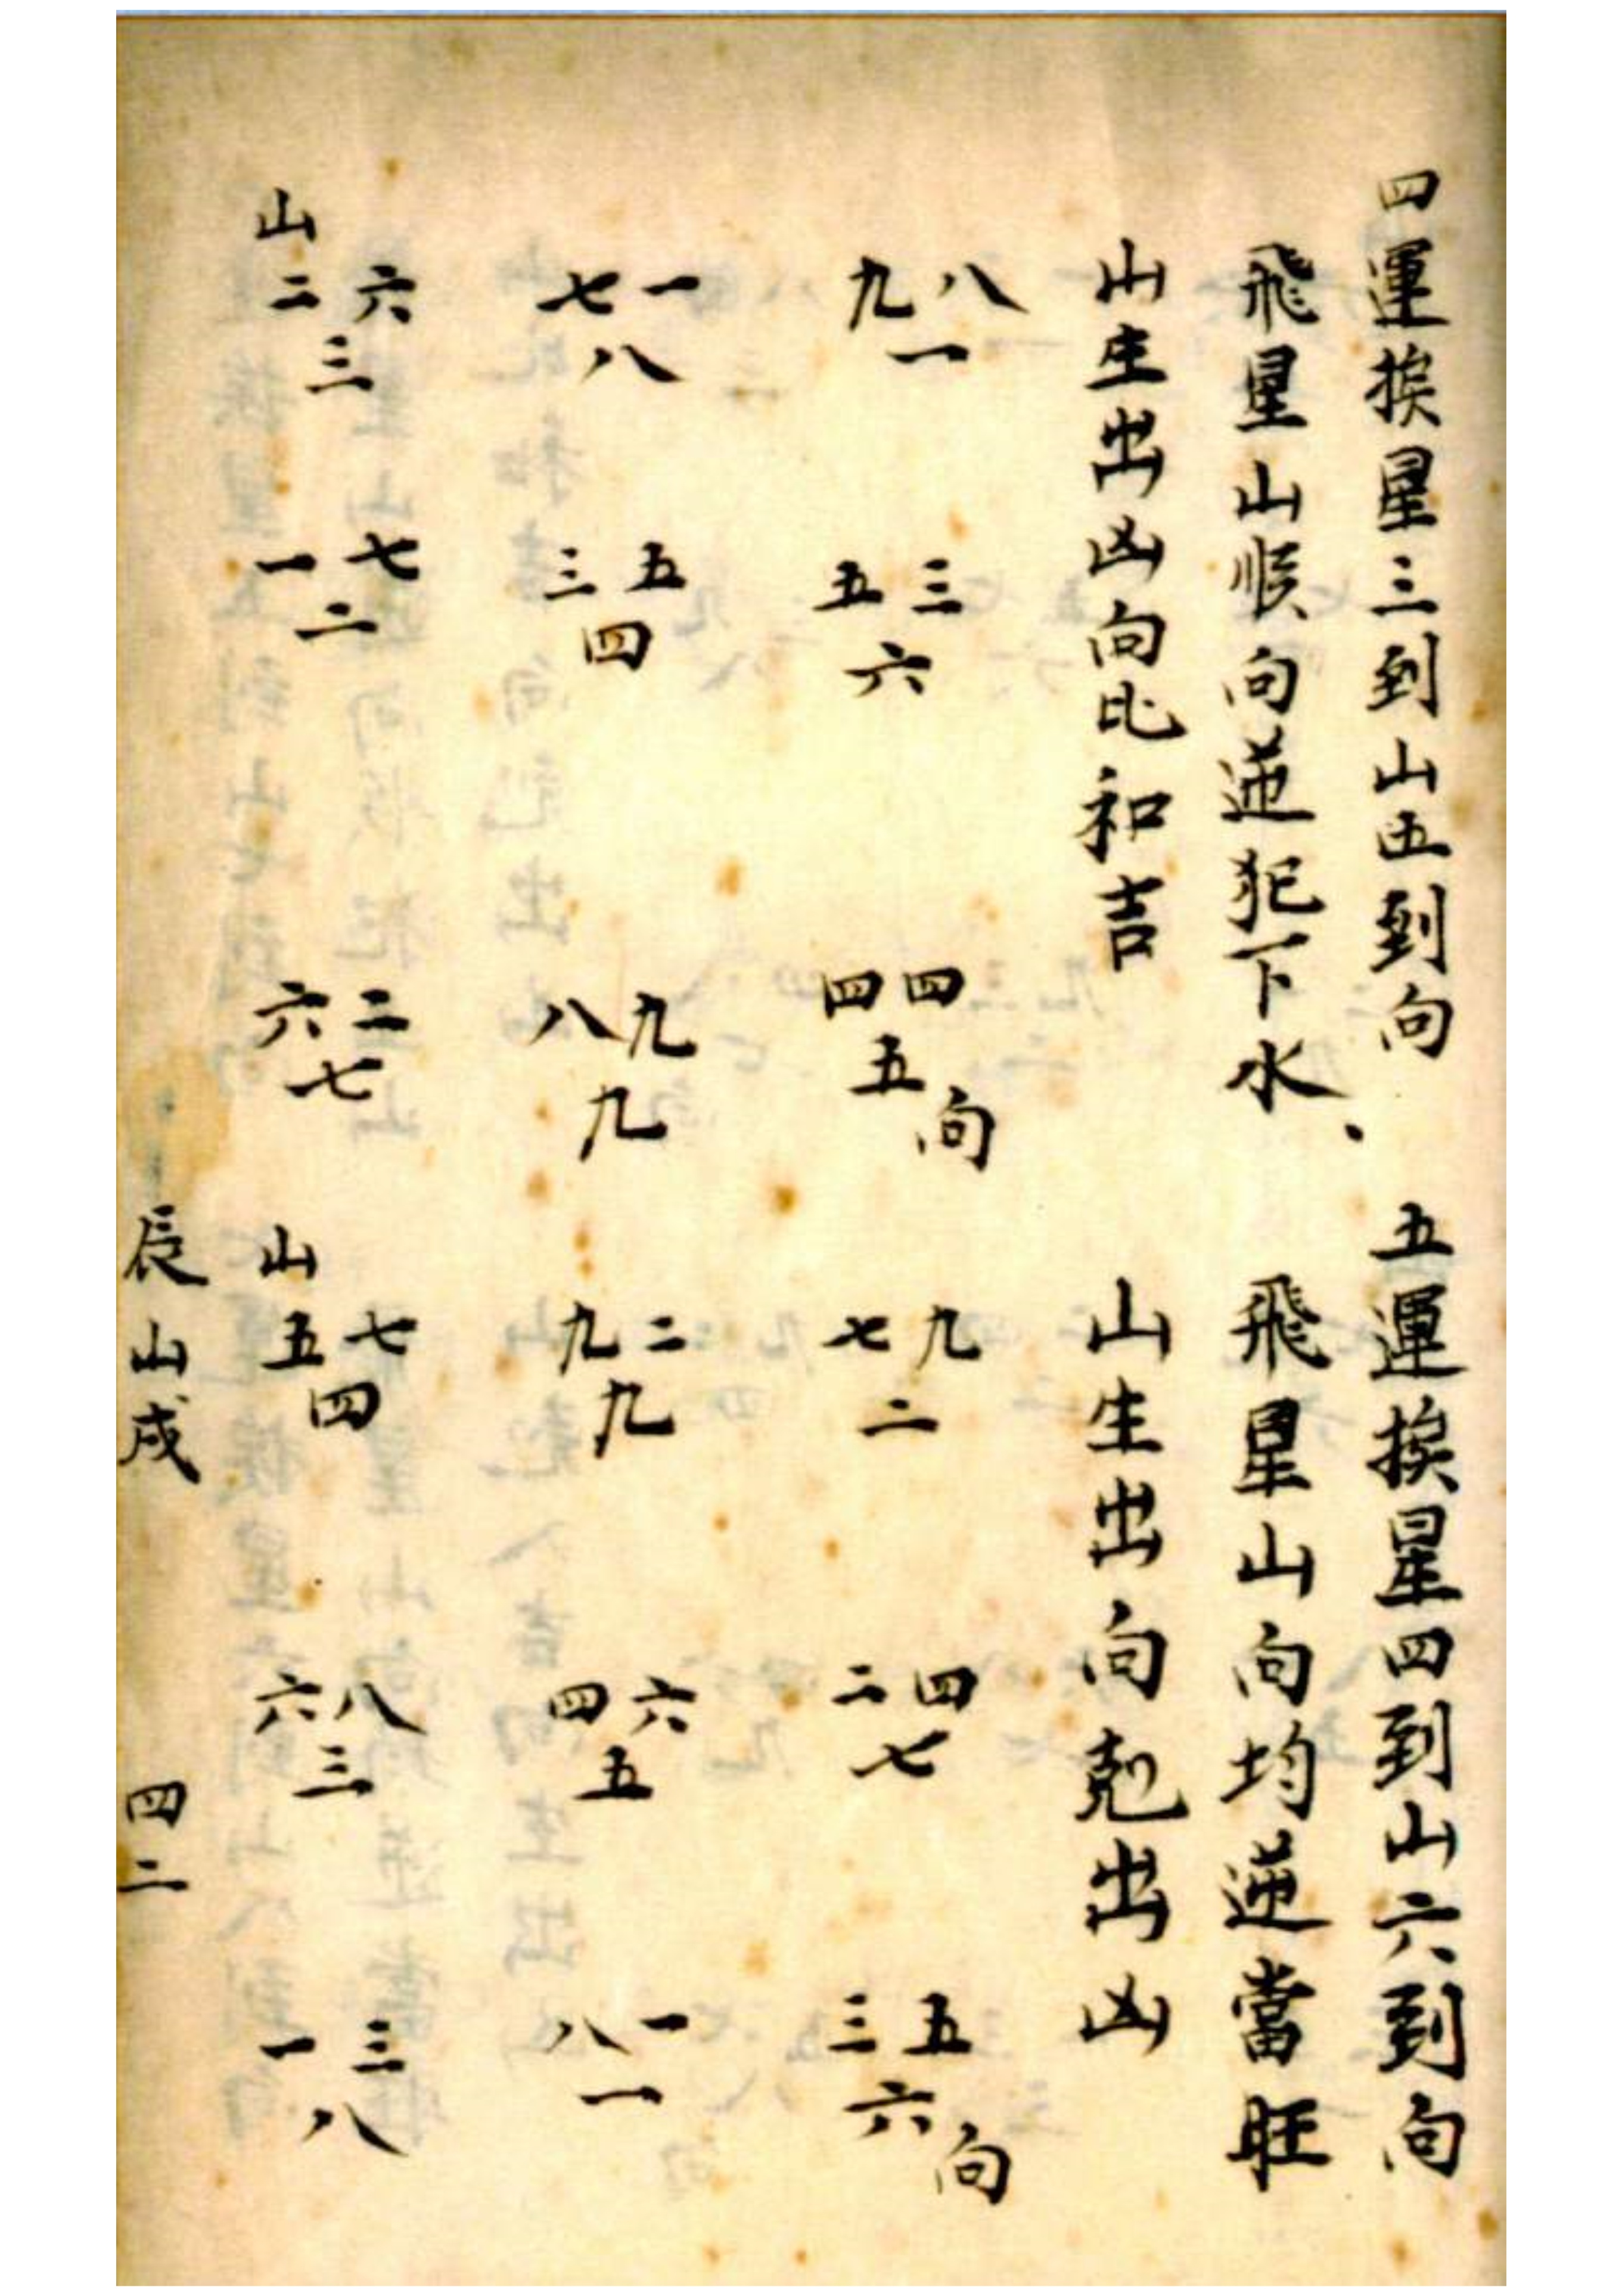 四運挨星三到山五到向
飛星山順向逆犯下水、
山生出凶向比和吉
九八
一
五三
六
四四
五
向
七一
八
三五
四
八九
九
山
二六
三
一七
二
六二
七
五運挨星四到山六到向
飛星山向均逆當旺
山生出向剋出凶
七九
二
二四
七
三五
六
向
九二
九
四六
五
八一
一
山
五七
四
六八
三
一三
八
辰山戌
四二